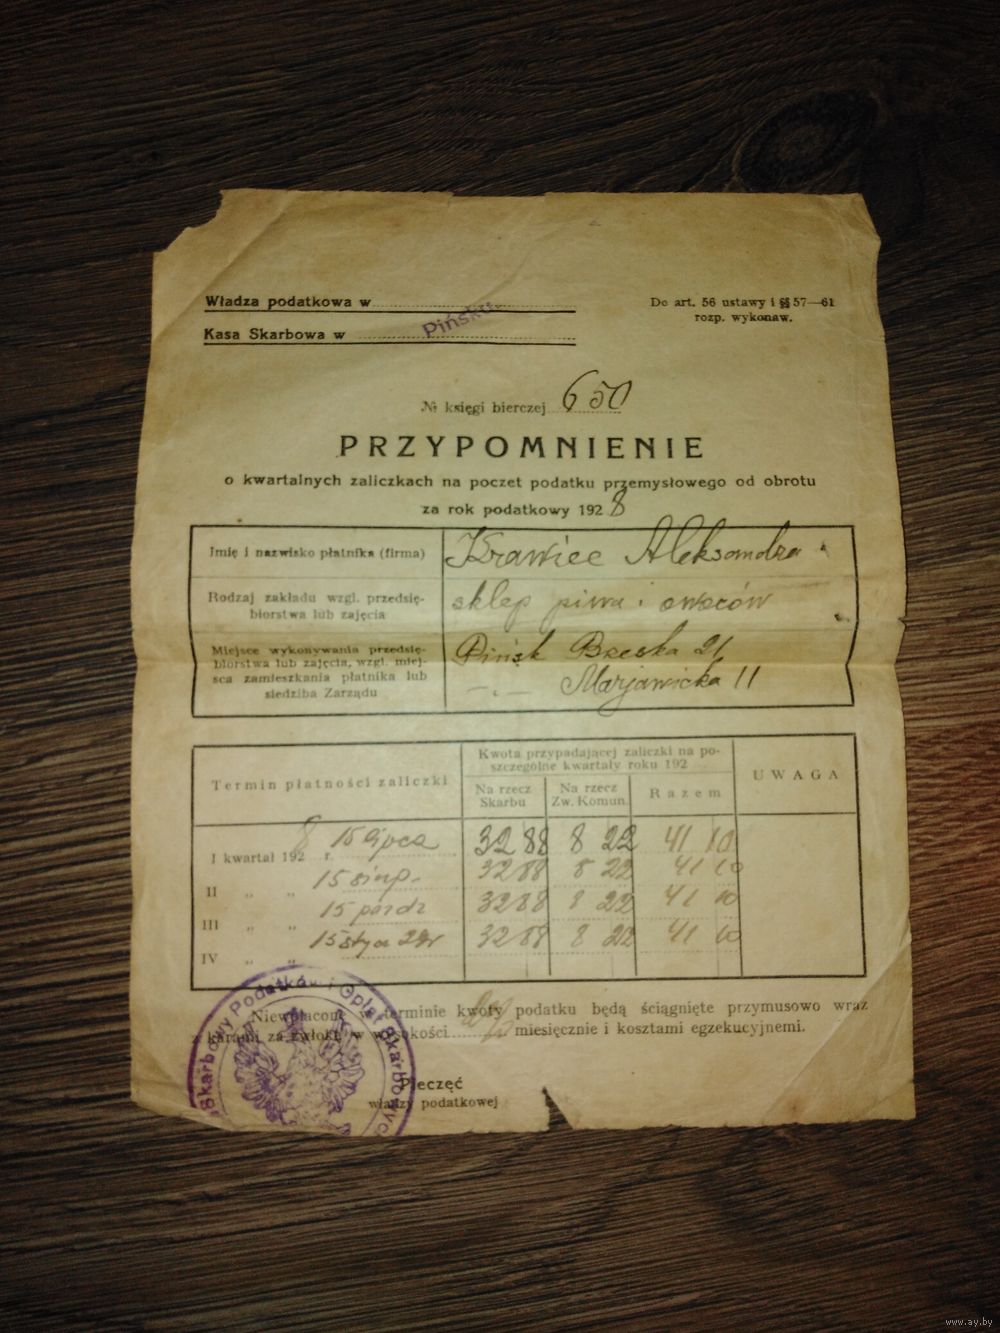 Władza podatkowa w
Do art. 56 ustawy i §§ 57—61
rozp. wykonaw.
Kasa Skarbowa w Pińsku
№ księgi bierczej 650
PRZYPOMNIENIE
o kwartalnych zaliczkach na poczet podatku przemysłowego od obrotu
za rok podatkowy 1928
Imię i nazwisko płatnika (firma) Krawiec Aleksandra
Rodzaj zakładu wzgl. przedsię-
biorstwa lub zajęcia
sklep piwa i owoców
Miejsce wykonywania przedsię-
biorstwa lub zajęcia, wzgl. miej-
sca zamieszkania płatnika lub
siedziba Zarządu
Pińsk Brzeska 21
—„— Marjawicka 11
Termin płatności zaliczki
Kwota przypadającej zaliczki na po-
szczególne kwartały roku 192
Na rzecz
Skarbu
Na rzecz
Zw. Komun.
Razem
UWAGA
I kwartał 1928 r. 15 lipca 32 88 8 22 41 10
II „ „ 15 sierp. 32 88 8 22 41 10
III „ „ 15 paźdz 32 88 8 22 41 10
IV „ „ 15 stycz 29 r 32 88 8 22 41 10
Niewpłacone w terminie kwoty podatku będą ściągnięte przymusowo wraz
z karami za zwłokę w wysokości miesięcznie i kosztami egzekucyjnemi.
Pieczęć
władzy podatkowej
Skarbowy Podatków i Opłat Skarbowych
www.ay.by